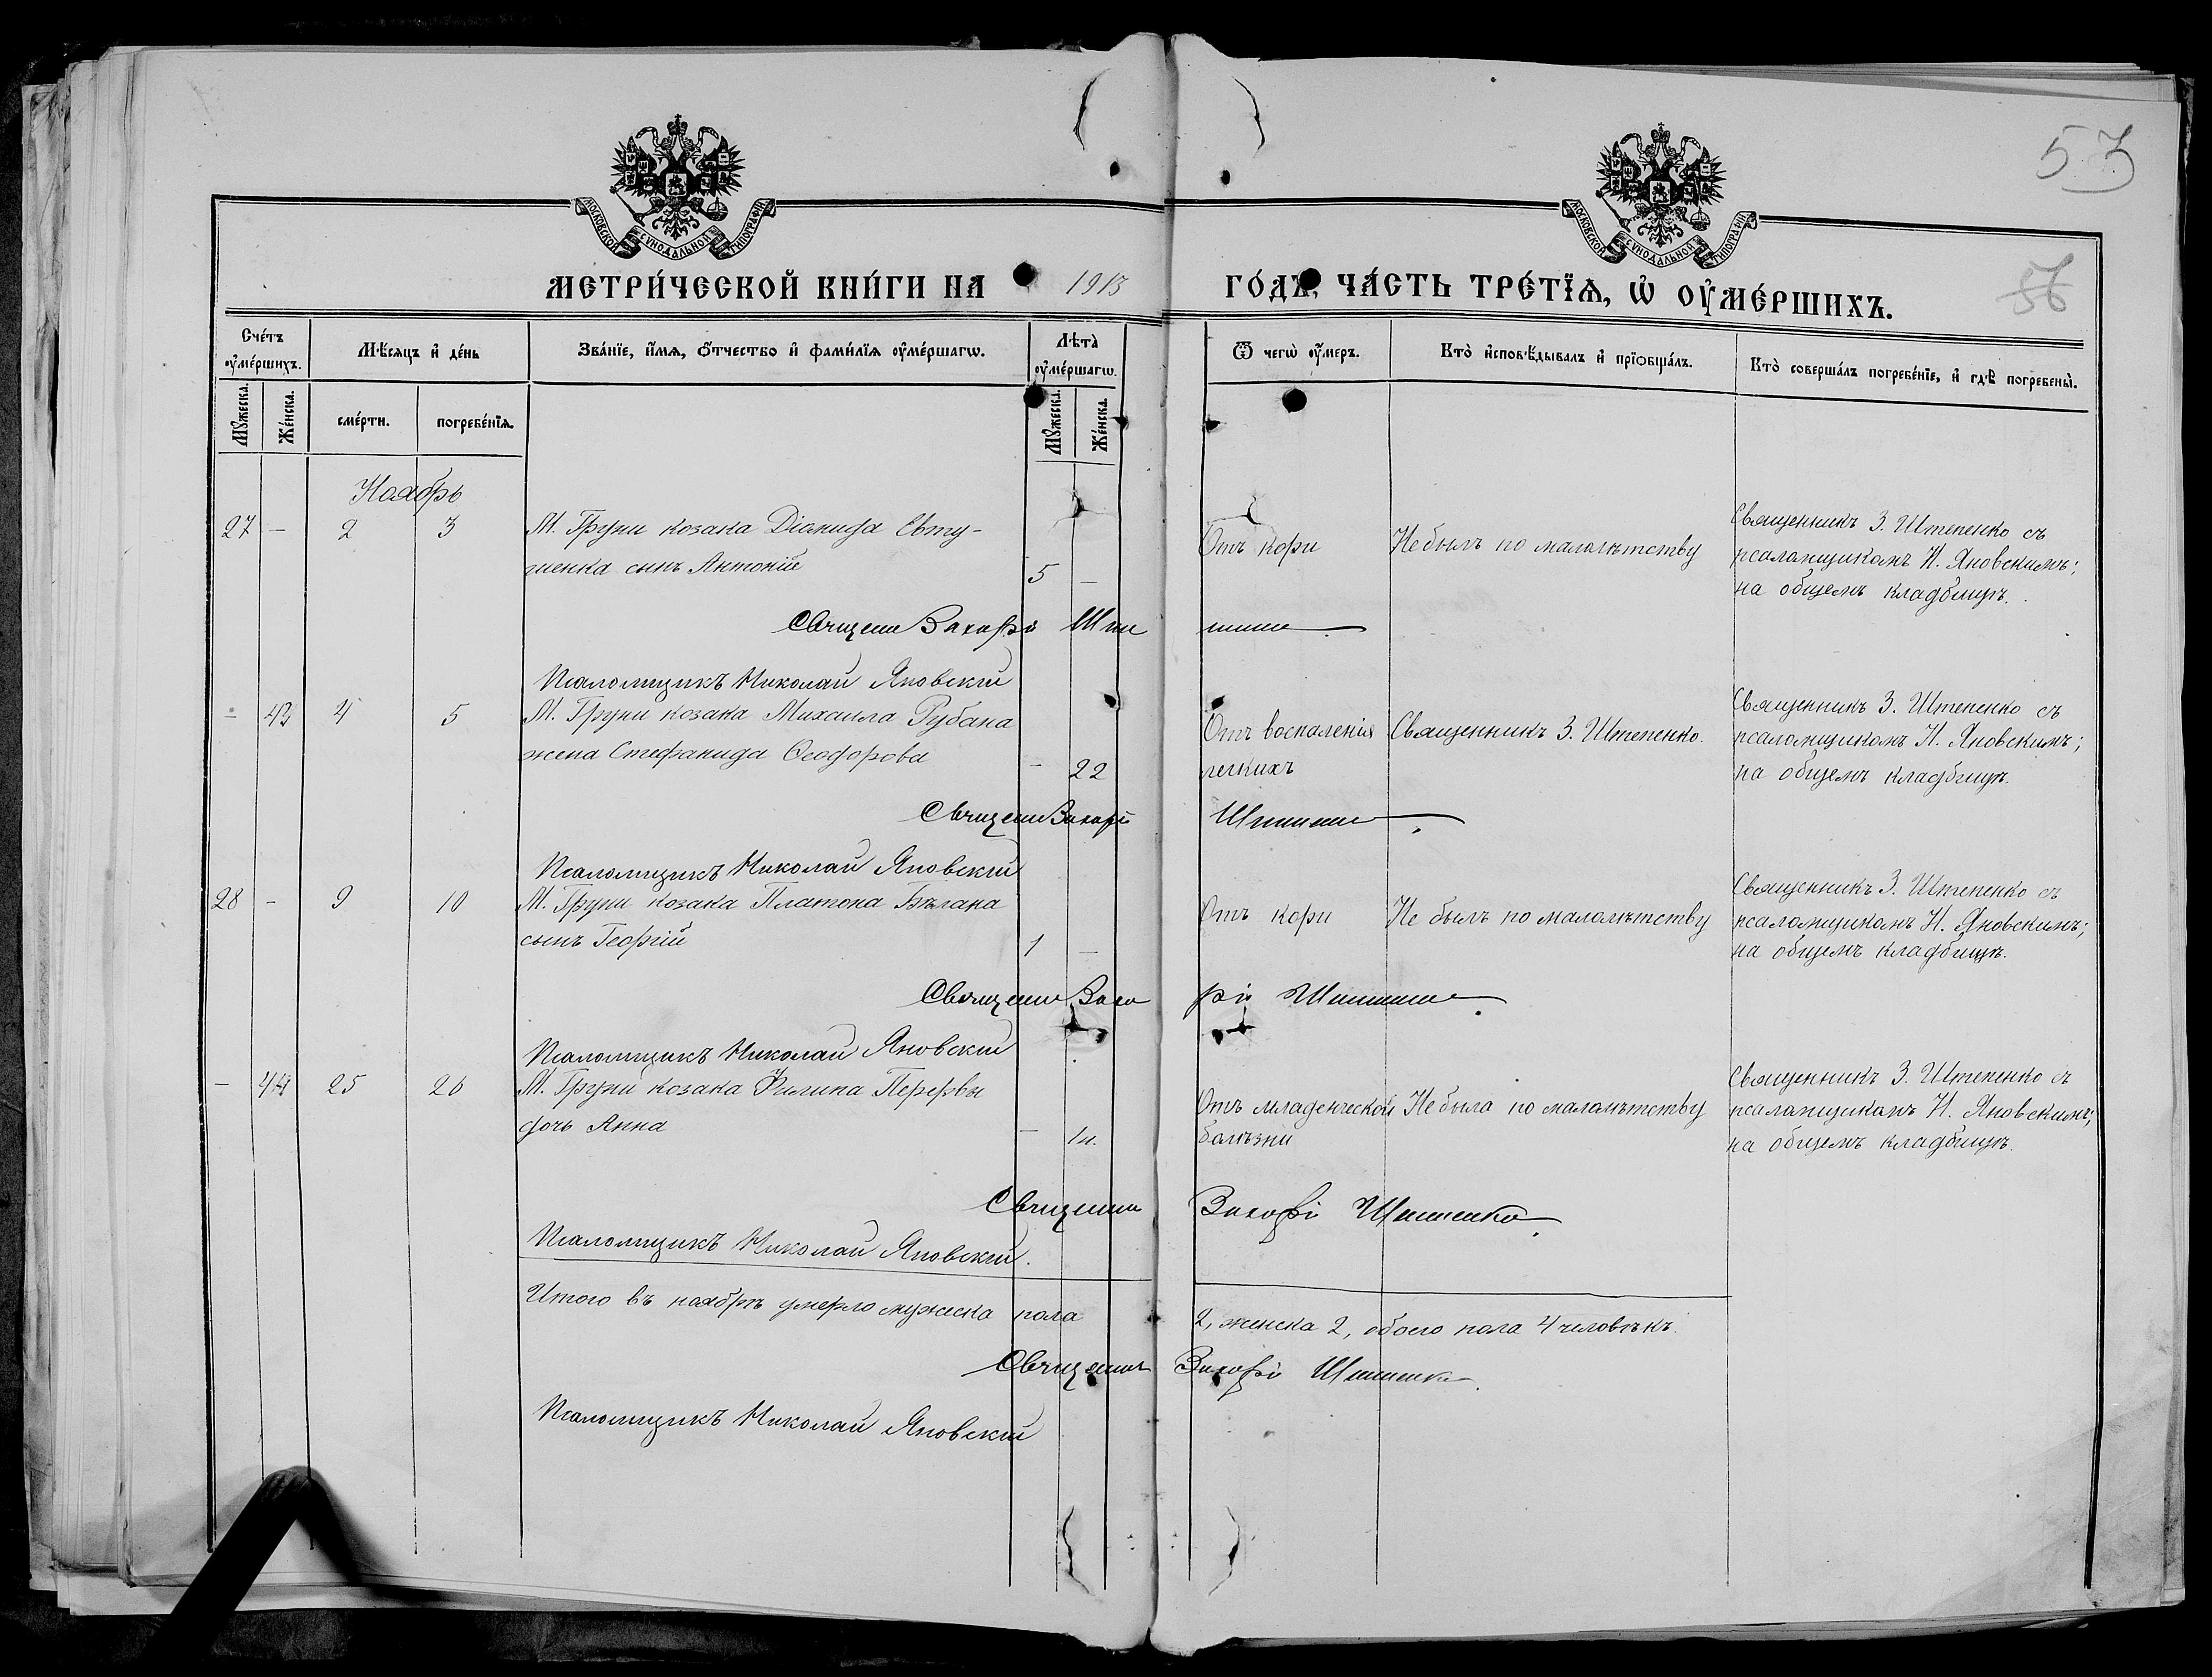 53
56
МОСКОВСКОЙ СУНОДАЛЬНОЙ ТИПОГРАФІИ
МОСКОВСКОЙ СУНОДАЛЬНОЙ ТИПОГРАФІИ
МЕТРИ́ЧЕСКОЙ КНИ́ГИ НА 1913 ГО́ДЪ, ЧА́СТЬ ТРЕ́ТЇѦ, Ѡ҆ ОУ҆МЕ́РШИХЪ.
Сче́тъ оу҆ме́ршихъ.
Мꙋ́жеска.
Же́нска.
Мѣ́сяцъ и҆ де́нь
сме́рти.
погребе́нїѧ.
Зва́нїе, и҆́мѧ, ѻ҆́тчество и҆ фами́лїѧ оу҆ме́ршагѡ.
Лѣ́та оу҆ме́ршагѡ.
Мꙋ́жеска.
Же́нска.
Ѿ чегѡ̀ оу҆́меръ.
Кто̀ и҆сповѣ́дывалъ и҆ прїѻбща́лъ.
Кто̀ соверша́лъ погребе́нїе, и҆ гдѣ̀ погребены̀.
Ноябрь
27 - 2 3 М. Груни козака Діомида Евту-
шенка сынъ Антоній 5 -
Отъ кори Не былъ по малолѣтству
Священникъ З. Штепенко съ
псаломщикомъ Н. Яновскимъ;
на общемъ кладбищѣ.
Священ Захарій Штепенко
Псаломщикъ Николай Яновскій
- 43 4 5 М. Груни козака Михаила Рубана
жена Стефанида Ѳеодорова - 22
Отъ воспаленія Священникъ З. Штепенко.
легкихъ
Священникъ З. Штепенко съ
псаломщикомъ Н. Яновскимъ;
на общемъ кладбищѣ.
Священ Захарій Штепенко
Псаломщикъ Николай Яновскій
28 - 9 10 М. Груни козака Платона Бѣлана
сынъ Георгій 1 -
Отъ кори Не былъ по малолѣтству
Священникъ З. Штепенко съ
псаломщикомъ Н. Яновскимъ;
на общемъ кладбищѣ.
Священ Захарій Штепенко
Псаломщикъ Николай Яновскій
- 44 25 26 М. Груни козака Филипа Перервы
дочь Анна -
Отъ младенческой Не была по малолѣтству
болѣзни
Священникъ З. Штепенко съ
псаломщикомъ Н. Яновскимъ;
на общемъ кладбищѣ.
Священ Захарій Штепенко
Псаломщикъ Николай Яновскій.
Итого въ ноябрѣ умерло мужеска пола 2, женска 2, обоего пола 4 человѣкъ.
Священ Захарій Штепенко
Псаломщикъ Николай Яновскій